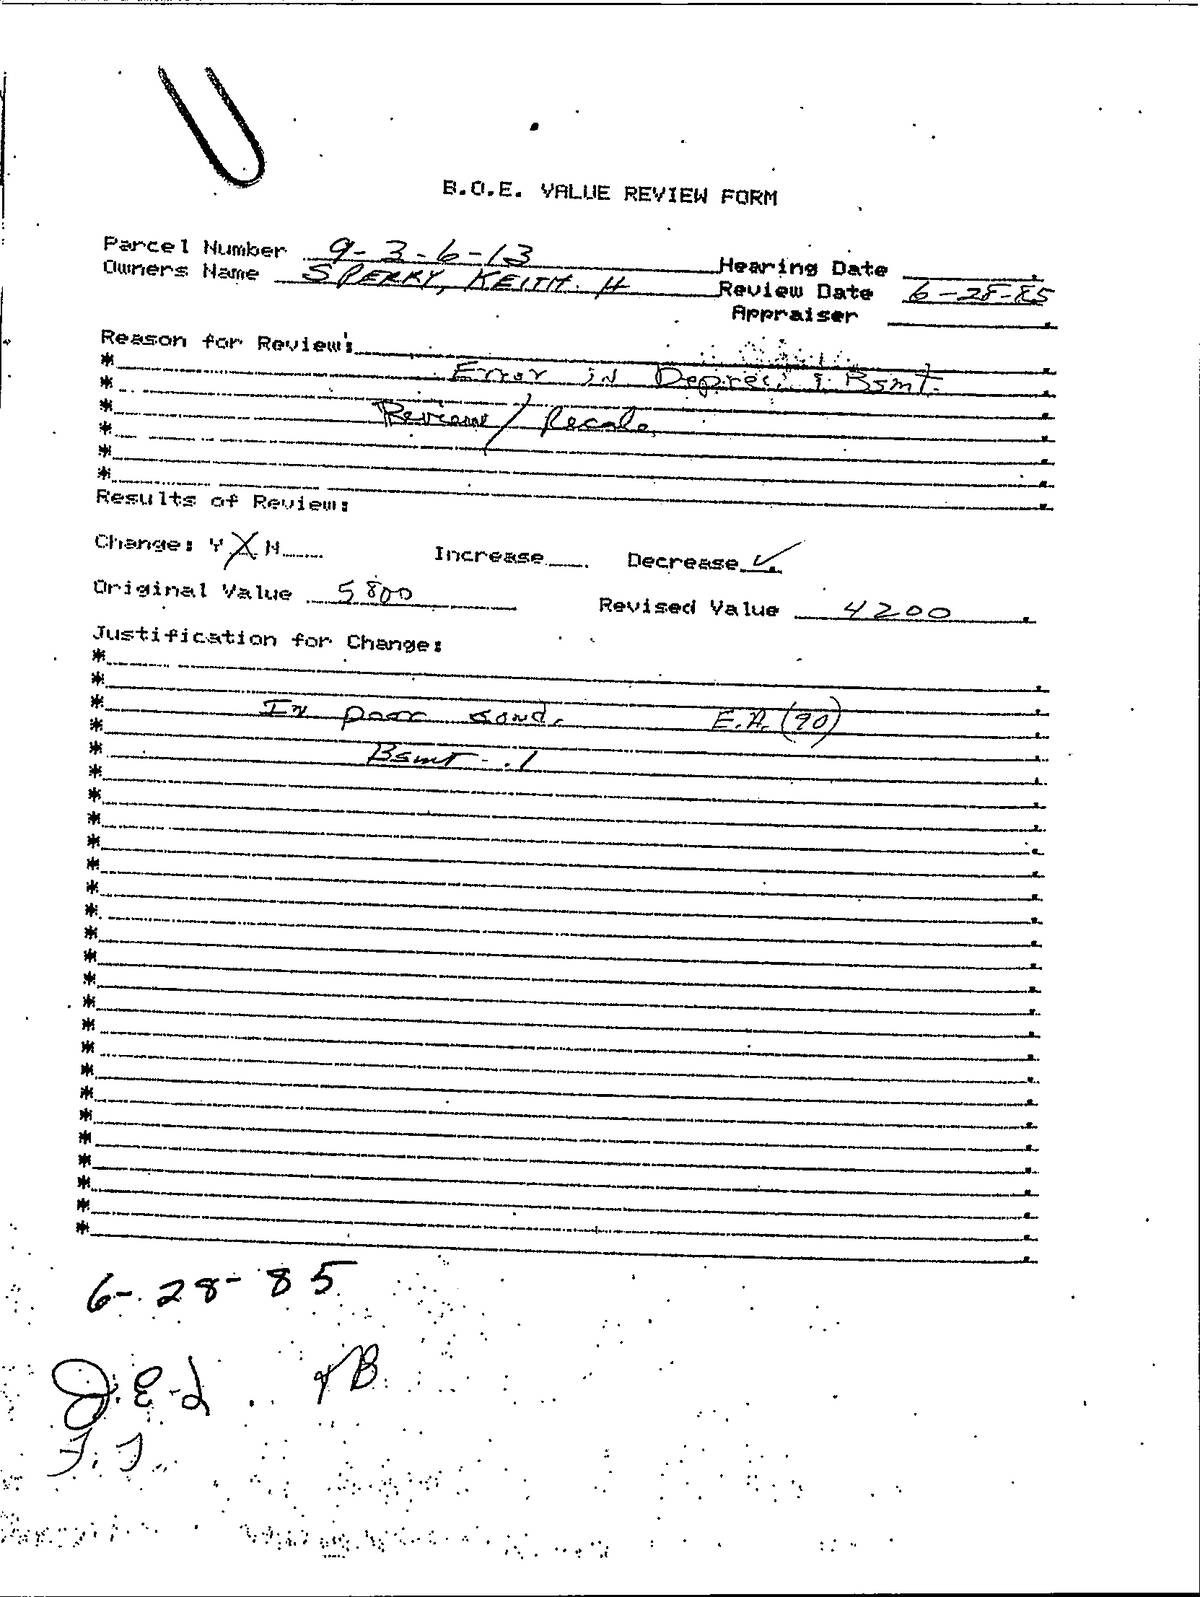 B.O.E. VALUE REVIEW FORM
Parcel Number 9-3-6-13
Owners Name SPERRY, KEITH. H
Hearing Date
Review Date 6-28-85
Appraiser
Reason for Review:
* Error in Deprec. & Bsmt.
*
* Review/Recalc.
*
*
*
Results of Review:
Change: Y X N Increase Decrease ✓
Original Value 5800 Revised Value 4200
Justification for Change:
*
*
* In poor cond. E.A. (90)
*
* Bsmt - .1
*
*
*
*
*
*
*
*
*
*
*
*
*
*
*
*
*
*
*
*
*
6-28-85
J.E.L